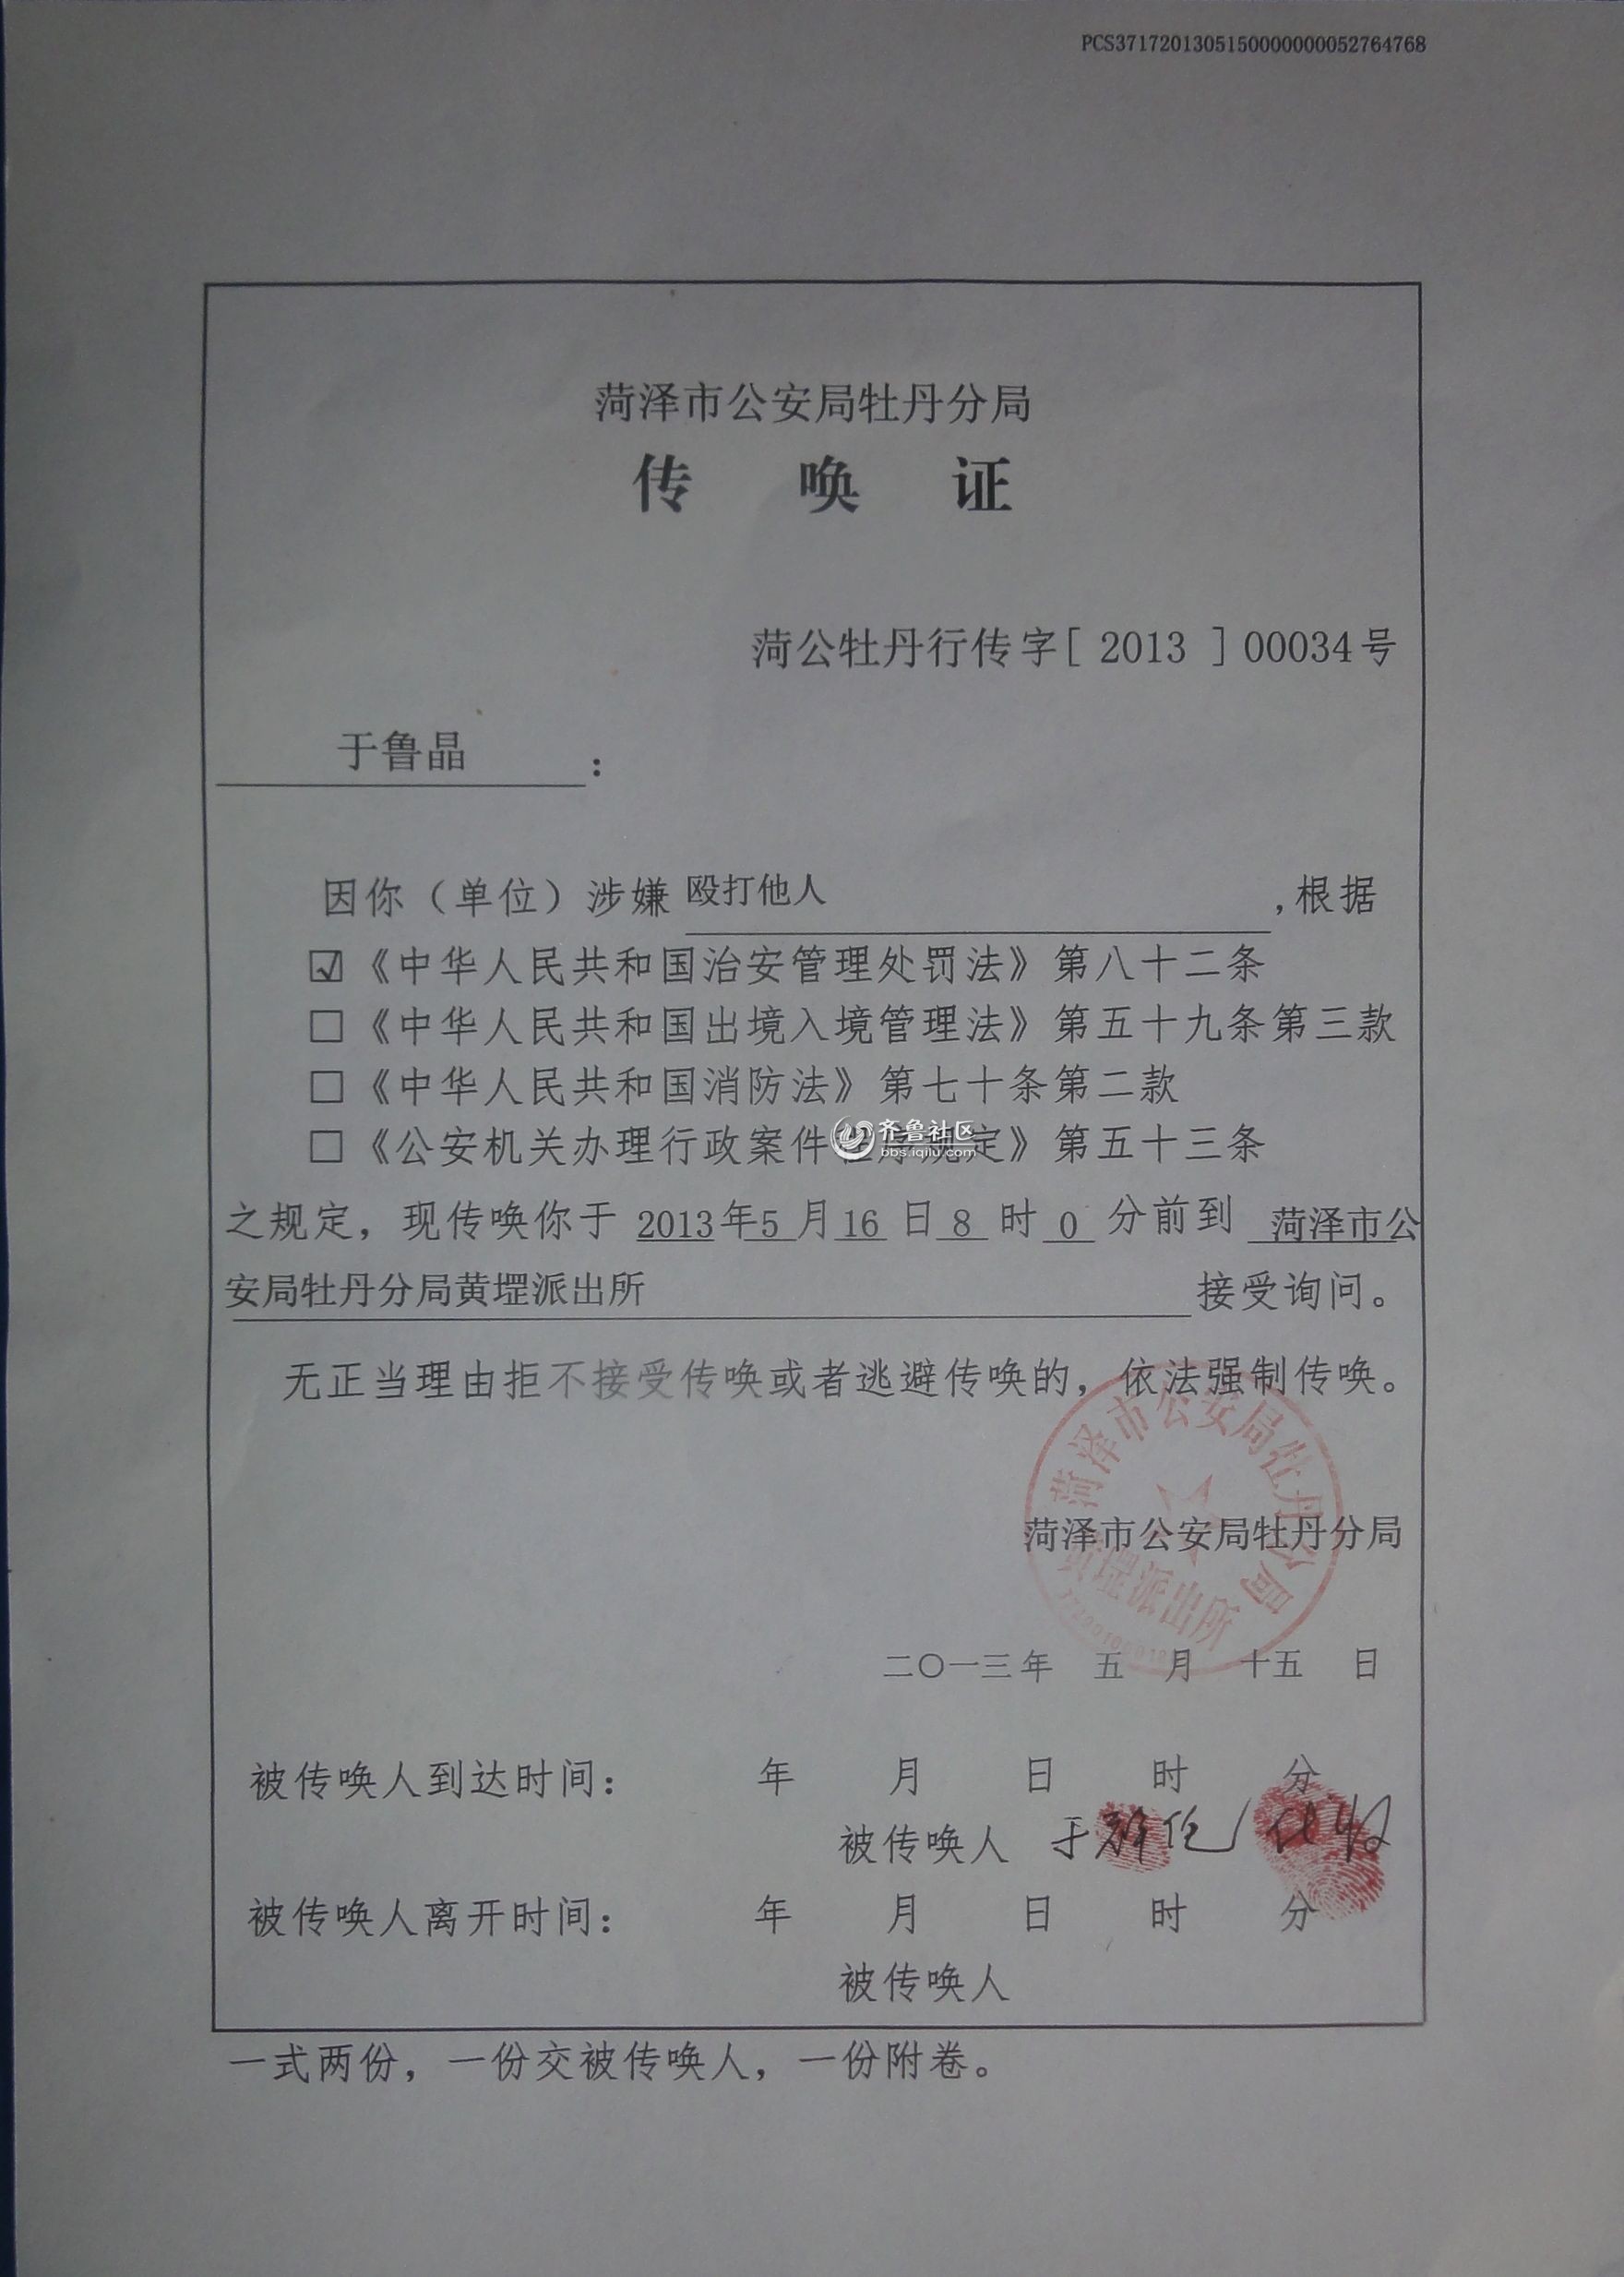 PCS3717201305150000000052764768
菏泽市公安局牡丹分局
传 唤 证
菏公牡丹行传字[ 2013 ]00034号
于鲁晶 :
因你（单位）涉嫌 殴打他人 ,根据
☑《中华人民共和国治安管理处罚法》第八十二条
□《中华人民共和国出境入境管理法》第五十九条第三款
□《中华人民共和国消防法》第七十条第二款
□《公安机关办理行政案件程序规定》第五十三条
齐鲁社区
bbs.iqilu.com
之规定，现传唤你于 2013年5月16日8时0分前到 菏泽市公
安局牡丹分局黄堽派出所 接受询问。
无正当理由拒不接受传唤或者逃避传唤的，依法强制传唤。
菏泽市公安局牡丹分局
黄堽派出所
菏泽市公安局牡丹分局
二〇一三年 五 月 十五 日
被传唤人到达时间： 年 月 日 时 分
被传唤人 于 代收
被传唤人离开时间： 年 月 日 时 分
被传唤人
一式两份，一份交被传唤人，一份附卷。